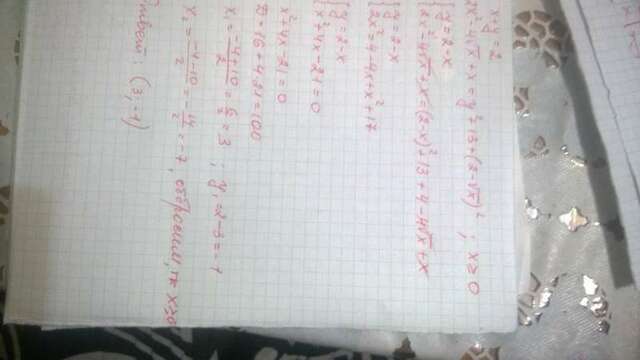 x+y=2
2x²-4√x+x=y²+13+(2-√x)² ; x≥0
{y=2-x
{2x²-4√x+x=(2-x)²+13+4-4√x+x
{y=2-x
{2x²=4-4x+x²+17
{y=2-x
{x²+4x-21=0
x²+4x-21=0
D=16+4·21=100
x₁=(-4+10)/2=6/2=3 ; y₁=2-3=-1
x₂=(-4-10)/2=-14/2=-7, отбросим, тк x≥0
Ответ: (3;-1)